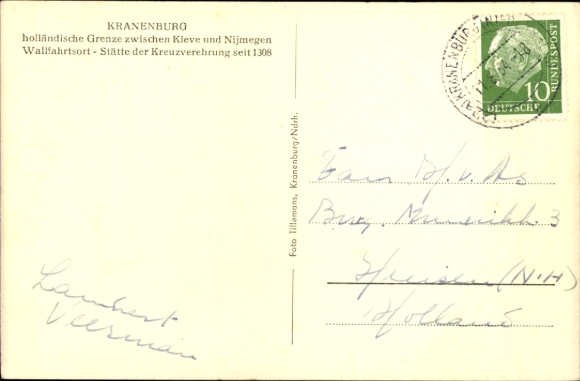 KRANENBURG
holländische Grenze zwischen Kleve und Nijmegen
Wallfahrtsort - Stätte der Kreuzverehrung seit 1308
KRANENBURG
10
DEUTSCHE
BUNDESPOST
Foto Tillemans, Kranenburg/Ndrh.
Fam
Burg. 3
Huizen (N-H)
Holland
Lambert
Veerman